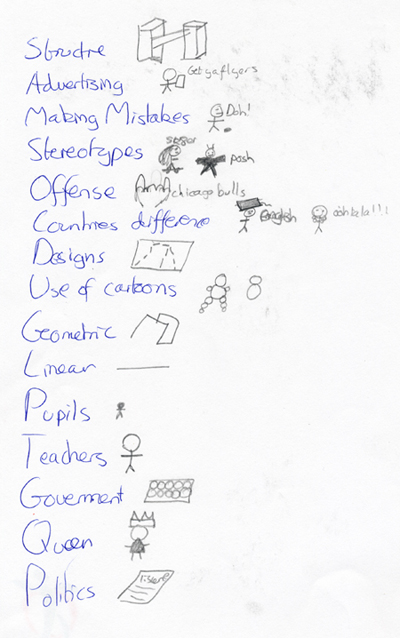 Structre
Advertising Get ya flyers
Making Mistakes Doh!
Stereotypes posh
Offense chicago bulls
Countries difference English ooh la la!!!
Designs
Use of cartoons
Geometric
Linear
Pupils
Teachers
Goverment
Queen
Politics